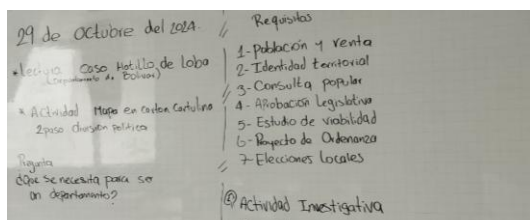 29 de Octubre del 2024.
*Lectura Caso Hatillo de Loba
(Departamento de Bolívar)
* Actividad Mapa en carton Cartulina
2piso división política
Pregunta
¿Qué se necesita para ser
un departamento?
Requisitos
1- población y renta
2- Identidad territorial
3- Consulta popular
4- Aprobación Legislativa
5- Estudio de viabilidad
6- Proyecto de Ordenanza
7- Elecciones locales
Actividad Investigativa